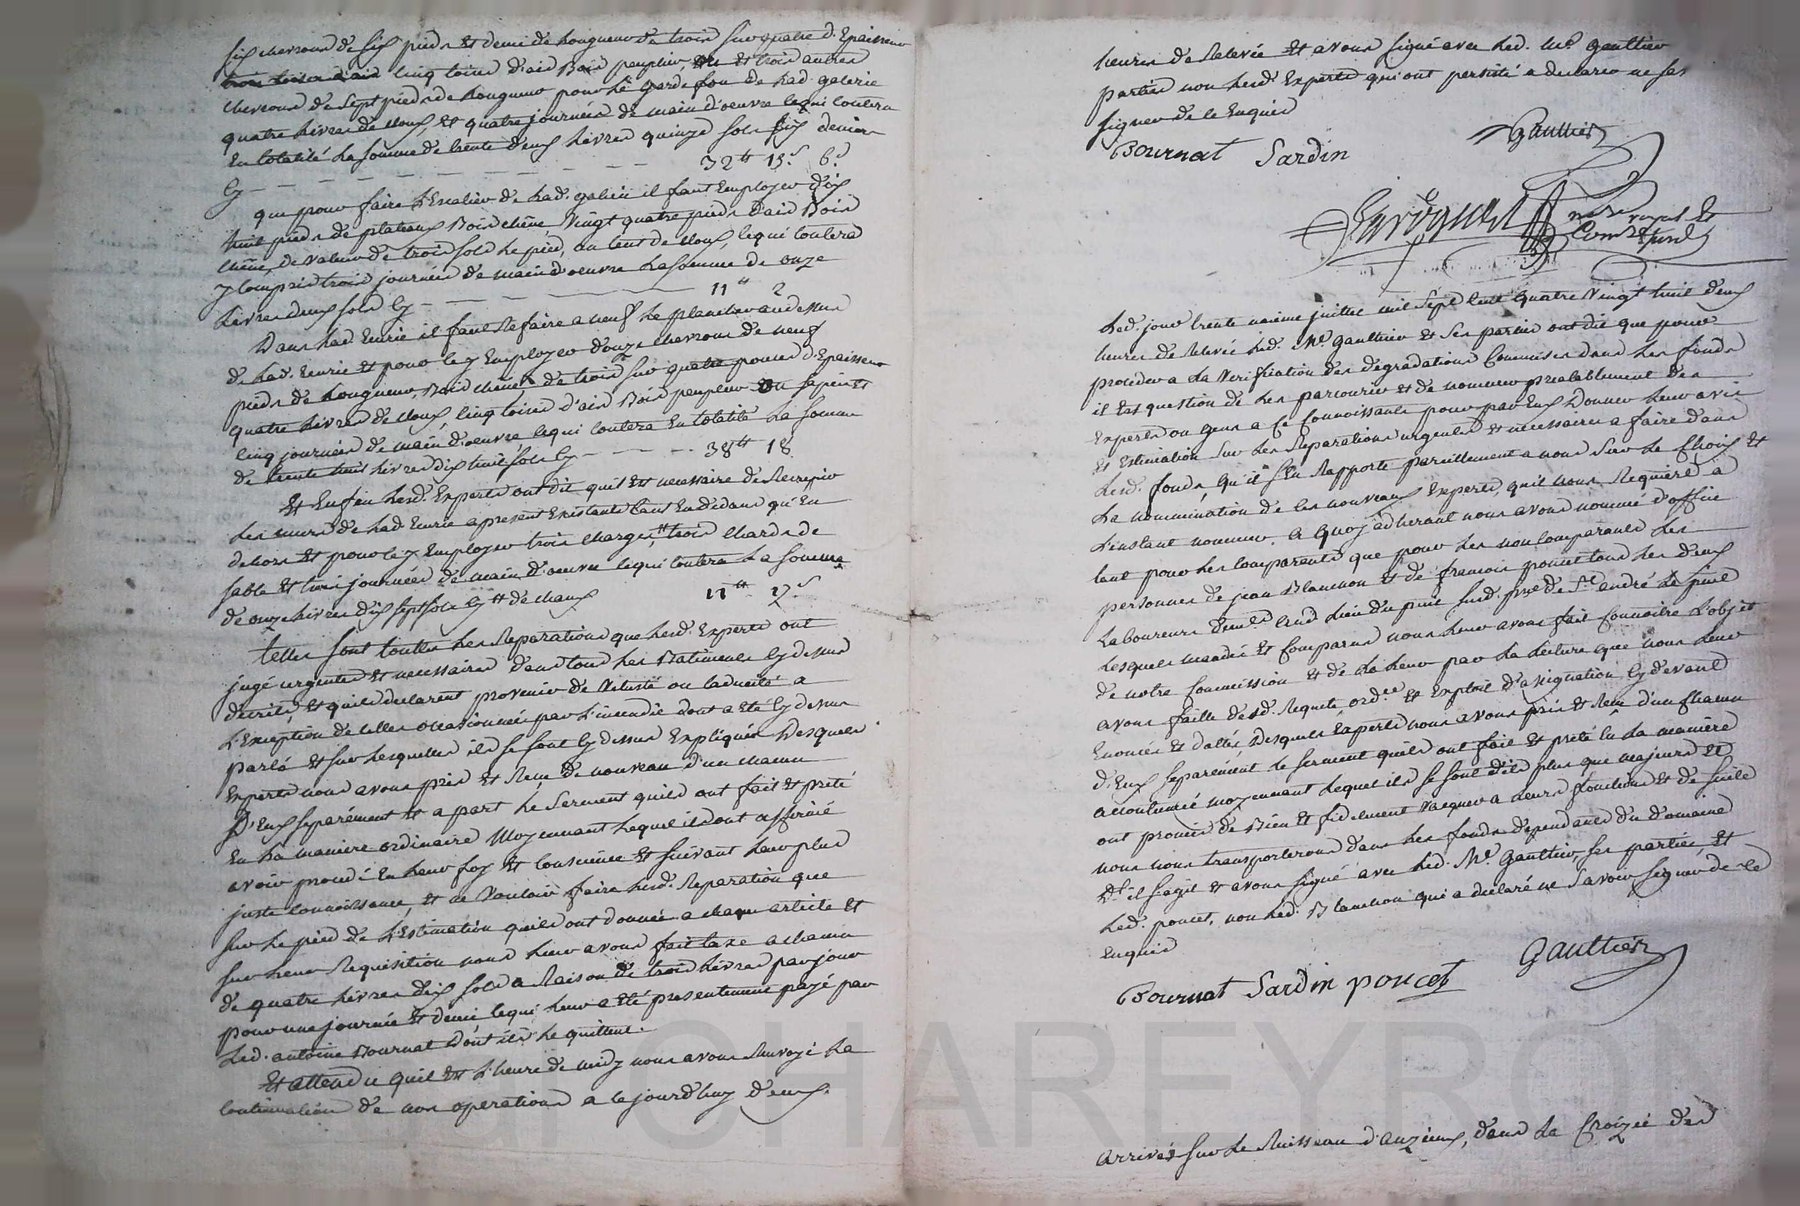 six chevrons de six pieds et demi de longueur de trois sur quatre d'Epaisseur
cinq toises d'aid Bois peuplier et trois autres
chevrons de sept pieds de longueur pour le garde fou de lad. galerie
quatre livres de cloux, et quatre journées de main d'oeuvre le qui coutera
En totalité la somme de trente deux livres quinze sols six deniers
Cy - - - - - - - 32tt 15s 6d
que pour faire l'Escalier de lad. galerie il faut Employer dix
huit pieds de plateaux Bois chêne, vingt quatre pieds d'aid Bois
chêne, de valeur de trois sols le pied, un cent de cloux, le qui coutera
y compris trois journées de main d'oeuvre la somme de onze
livres deux sols Cy - - - - 11tt 2
Dans lad. Ecurie il faut Refaire a neuf le plancher au dessus
de lad. Ecurie et pour le y Employer douze chevrons de neuf
pieds de longueur, Bois chêne de trois sur quatre pouces d'Epaisseur
quatre livres de cloux, cinq toises d'aid Bois peuplier ou sapin et
cinq journées de main d'oeuvre le qui coutera En totalité la somme
de trente huit livres dix huit sols Cy - - - - 38tt 18
Et Enfin lesd. Experts ont dit quil Est necessaire de Recrepir
les murs de lad. Ecurie apresent Existants tant En dedans qu'En
dehors et pour le y Employer trois charges tt trois chards de
sable et trois journées de main d'oeuvre le qui coutera la somme
de onze livres dix sept sols Cy tt de chaux 11tt 17s
telles sont toutes les Reparations que lesd. Experts ont
jugé urgentes et necessaires dans tous les Batiments Cy dessus
décrits, et quils declarent provenir de Vetusté ou caducité a
l'Exception de celles occasionnées par l'incendie dont a eté Cy dessus
parlé et sur lesquelles ils se sont Cy dessus Expliqués desquels
Experts nous avons pris et Reçu de nouveau d'un chacun
D'Eux separément et a part le Serment quils ont fait et preté
En la maniere ordinaire moyennant lequel ils ont affirmé
avoir procedé En leur foy et conscience et suivant leur plus
juste connoissance, et ne vouloir faire lesd. Reparations que
sur le pied de l'Estimation quils ont donnée a chaque article et
sur leur Requisition nous leur avons fait taxe a chacun
de quatre livres dix sols a Raison de trois livres par jour
pour une journée et demi le qui leur a eté presentement payé par
led. antoine Bournat dont ils le quittent.
Et attendu quil Est l'heure de midy nous avons Renvoyé la
continuation de nos operations a cejourd'huy deux
heures de Relevée Et avons signé avec led. Me. Gaultier
parties non lesd. Experts qui ont persisté a declarer ne savoir
signer de ce Enquis
Bournat Sardin Gaultier
nore royal Et
Comre
Led. jour trente unieme juillet mil sept cent quatre vingt huit deux
heures de Relevée led. Me. Gaultier et ses parties ont dit que pour
proceder a la Verification des degradations Commises dans les fonds
il Est question de les parcourir et de nommer prealablement des
Experts ou gens a ce connoissants pour par Eux donner leur avis
et Estimation sur les Reparations urgentes et necessaires a faire dans
lesd. fonds qu'ils s'en Rapporte pareillement a nous sur le Choix et
la nommination de ces nouveaux Experts, quil nous Requiere a
l'instant nommer. A quoy adherant nous avons nommé d'office
tant pour les Comparants que pour les non Comparants les
personnes de jean Blanchon et de francois poncet tous les deux
Laboureurs sud. psse de St. andré le puit
Lesquels mandés et Comparus nous leur avons fait connoitre l'objet
de notre Commission et de la leur par la lecture que nous leur
avons faitte desd. Requete, ordce. et Exploit d'assignation Cy devant
Enoncés et dattés, desquels Experts nous avons pris et Reçu d'un chacun
d'Eux separément le serment quils ont fait et prété En la manière
accoutumée moyennant lequel ils se sont dits plus que majeurs et
ont promis de Bien et fidelement vacquer a leurs fonctions et de suite
nous nous transporterons dans les fonds dependants du domaine
dt. il s'agit et avons signé avec led. Me. Gaultier, ses parties, et
led. poncet, non led. Blanchon qui a declaré ne Savoir signer de ce
Enquis
Bournat Sardin poncet Gaultier
arrivés sur le Ruisseau d'auzieux, dans la Croizée des
CHAREYRO